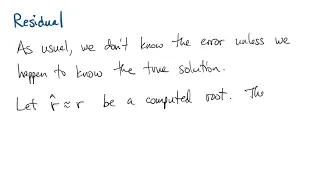 Residual
As usual, we don't know the error unless we
happen to know the true solution.
Let r̂ ≈ r be a computed root. The